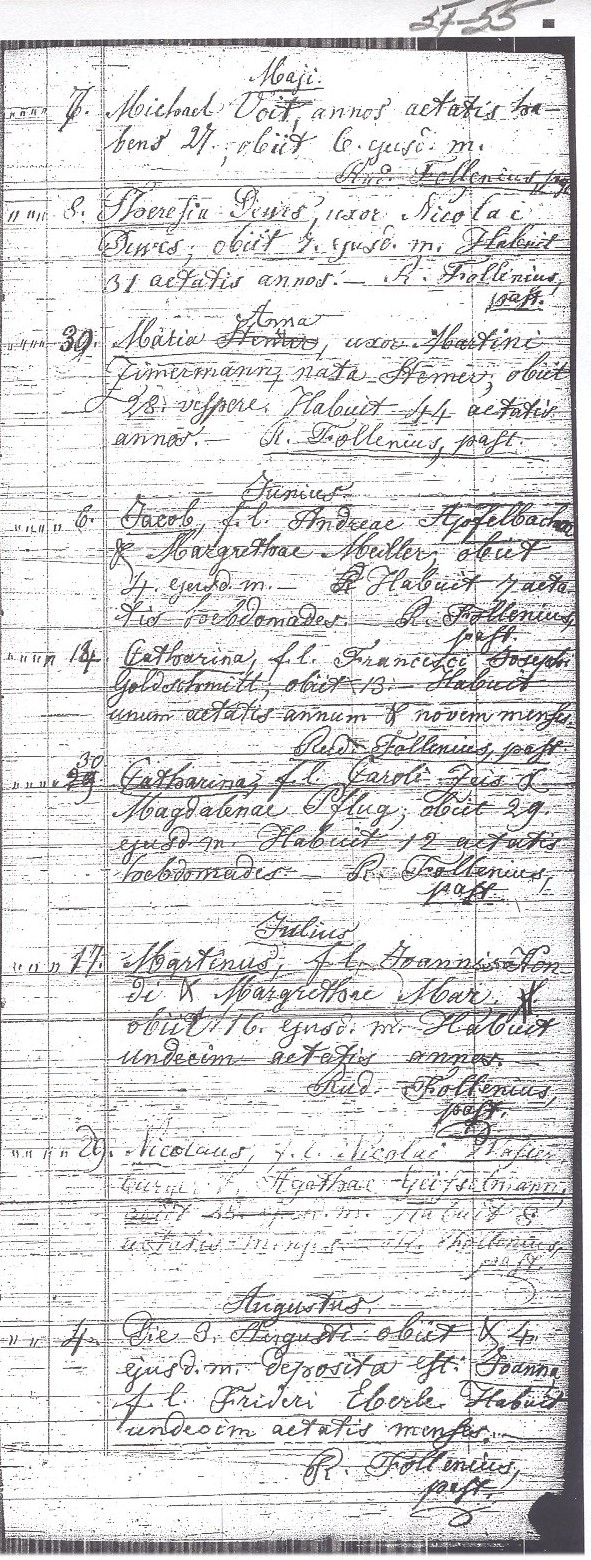 57-55
Maji.
"""" 7. Michael Voit, annos aetatis ha-
bens 27., obiit 6. ejusd. m.
Rud. Follenius,
""" 8. Theresia Dewes, uxor Nicolai
Dewes; obiit 7. ejusd. m. Habuit
31 aetatis annos. — R. Follenius,
past.
Anna
"""" 30. Maria Stemer, uxor Martini
Zimermann, nata Stemer, obiit
28. vespere. Habuit 44 aetatis
annos. — R. Follenius, past.
Junius.
"""" 6. Jacob, f. l. Andreae Apfelbacher
& Margrethae Meiller, obiit
4. ejusd. m. — Habuit 7 aeta-
tis hebdomades. — R. Follenius,
past.
"""" 14. Catharina, f. l. Francisci Joseph
Goldschmitt, obiit 13. — Habuit
unum aetatis annum & novem menses.
Rud. Follenius, past
30
"""" 29. Catharina, f. l. Caroli Zeis &
Magdalenae Pflug, obiit 29.
ejusd. m. Habuit 12 aetatis
hebdomades — R. Follenius,
past.
Julius
"""" 17. Martinus, f. l. Joannis Von-
di & Margrethae Mar.
obiit 16. ejusd. m. Habuit
undecim aetatis annos.
Rud. Follenius,
past.
"""" 29. Nicolaus, f. l. Nicolai
& Agathae Geisselmann,
obiit m. Habuit 8
aetatis menses — R. Follenius,
past.
Augustus.
"" 4. Die 3. Augusti obiit & 4.
ejusd. m. deposita est: Joanna,
f. l. Frideri Eberle Habuit
undecim aetatis menses.
R. Follenius,
past.